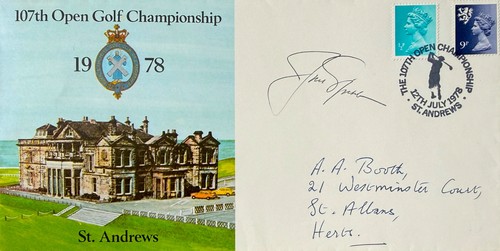 107th Open Golf Championship
1978
St. Andrews
½P
9P
THE 107TH OPEN CHAMPIONSHIP
12TH JULY 1978
ST. ANDREWS
A. A. Booth,
21 Westminster Court,
St. Albans,
Herts.